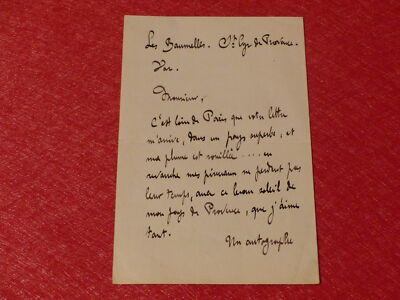 Les Baumelles. St Cyr de Provence.
Var.
Monsieur,
C'est loin de Paris que votre lettre
m'arrive, dans un pays superbe, et
ma plume est rouillée.... en
revanche mes pinceaux ne perdent pas
leur temps, avec ce beau soleil de
mon pays de Provence, que j'aime
tant.
Un autographe